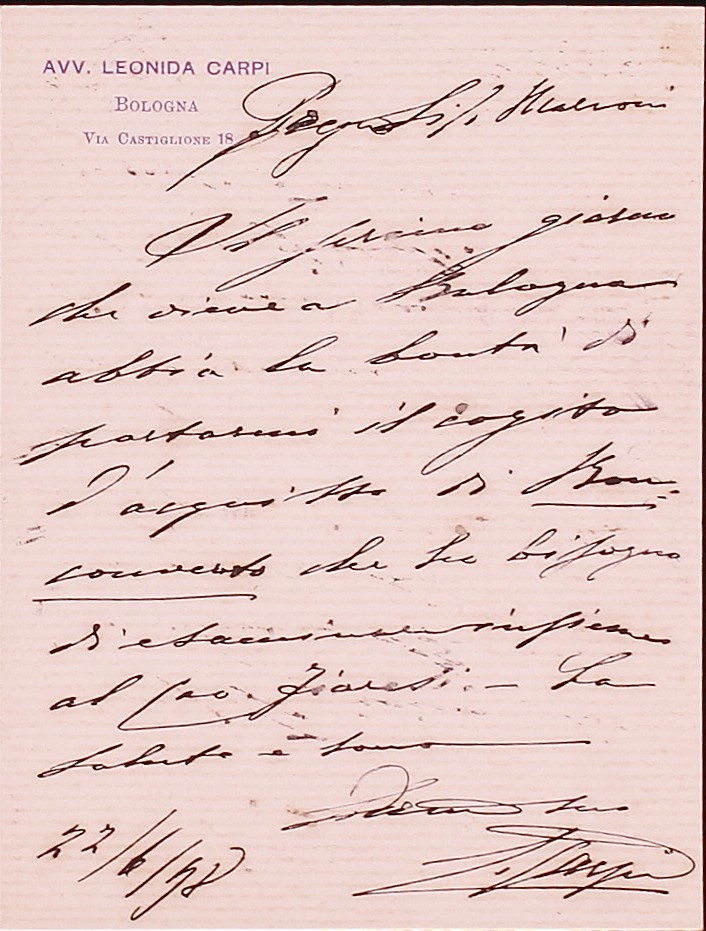 AVV. LEONIDA CARPI
BOLOGNA
VIA CASTIGLIONE 18
Preg. Sig.
Il primo giorno
che viene a Bologna
abbia la bontà di
portarmi il rogito
d'acquisto di Bon-
convento che ho bisogno
di esaminare insieme
al Cav. – La
saluto e sono
suo
L. Carpi
22/6/98